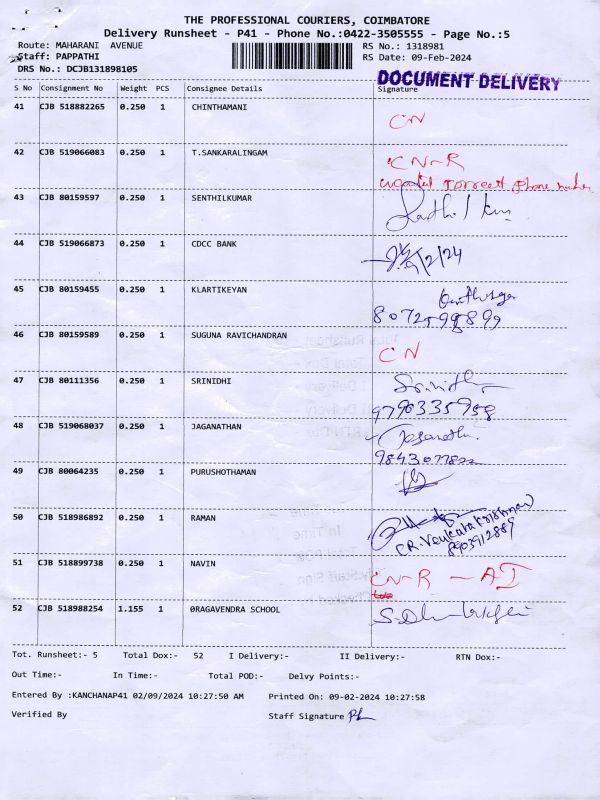 THE PROFESSIONAL COURIERS, COIMBATORE
Delivery Runsheet - P41 - Phone No.:0422-3505555 - Page No.:5
Route: MAHARANI AVENUE RS No.: 1318981
Staff: PAPPATHI RS Date: 09-Feb-2024
DRS No.: DCJB131898105
DOCUMENT DELIVERY
S No Consignment No Weight PCS Consignee Details Signature
41 CJB 518882265 0.250 1 CHINTHAMANI
CN
42 CJB 519066083 0.250 1 T.SANKARALINGAM
CN-R
correct phone number
43 CJB 80159597 0.250 1 SENTHILKUMAR
44 CJB 519066873 0.250 1 CDCC BANK
9/2/24
45 CJB 80159455 0.250 1 KLARTIKEYAN
8072599899
46 CJB 80159589 0.250 1 SUGUNA RAVICHANDRAN
CN
47 CJB 80111356 0.250 1 SRINIDHI
Srinidhi
9790335958
48 CJB 519068037 0.250 1 JAGANATHAN
Jaganathan
49 CJB 80064235 0.250 1 PURUSHOTHAMAN
50 CJB 518986892 0.250 1 RAMAN
(R. Venkatakrishnan)
8903912889
51 CJB 518899738 0.250 1 NAVIN
CN-R - AI
52 CJB 518988254 1.155 1 0RAGAVENDRA SCHOOL
Tot. Runsheet:- 5 Total Dox:- 52 I Delivery:- II Delivery:- RTN Dox:-
Out Time:- In Time:- Total POD:- Delvy Points:-
Entered By :KANCHANAP41 02/09/2024 10:27:50 AM Printed On: 09-02-2024 10:27:58
Verified By Staff Signature